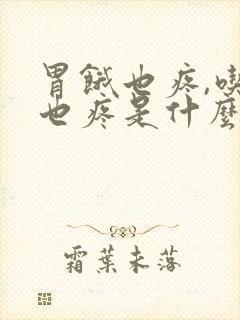 胃餓也疼,喫
也疼是什麼
霜葉未落